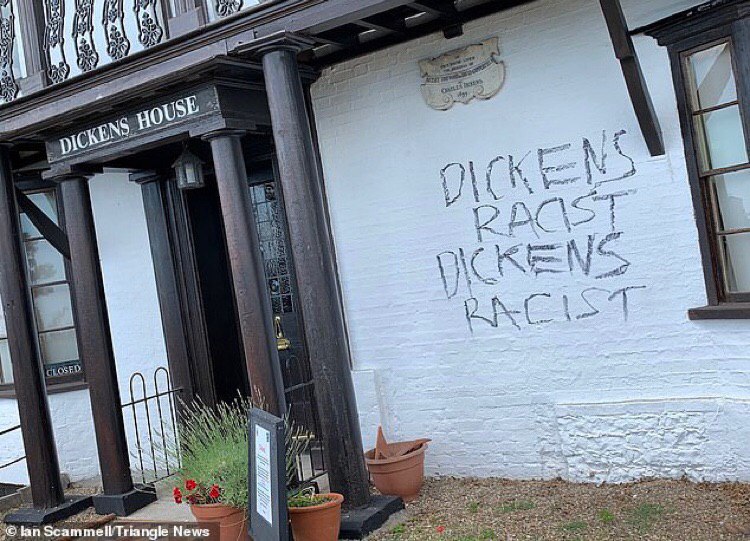 DICKENS HOUSE
CHARLES DICKENS
DICKENS
RACIST
DICKENS
RACIST
CLOSED
© Ian Scammell/Triangle News